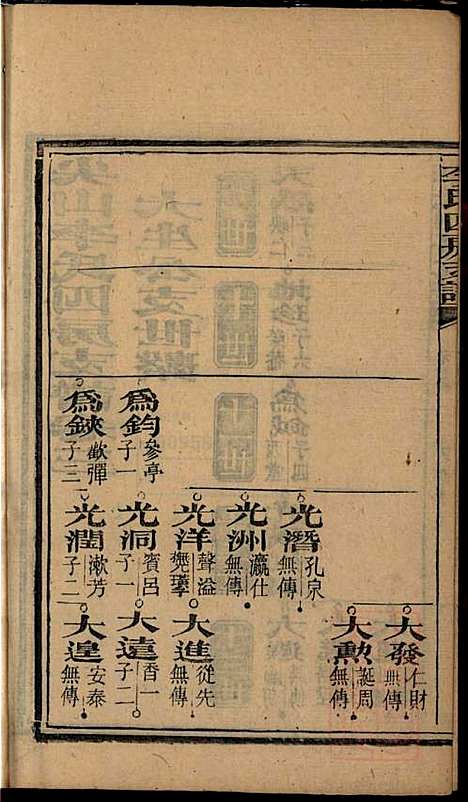 李氏四房支譜
光潛 孔泉 無傳
光洲 瀛仕 無傳
光洋 聲溢
為鈞 參亭 子一
光洞 賓呂 子一
為鋏 歡彈 子三
光潤 漱芳 子二
大發 仁財 無傳
大勲 誕周 無傳
大進 從先 無傳
大遠 香一 子二
大遑 安泰 無傳